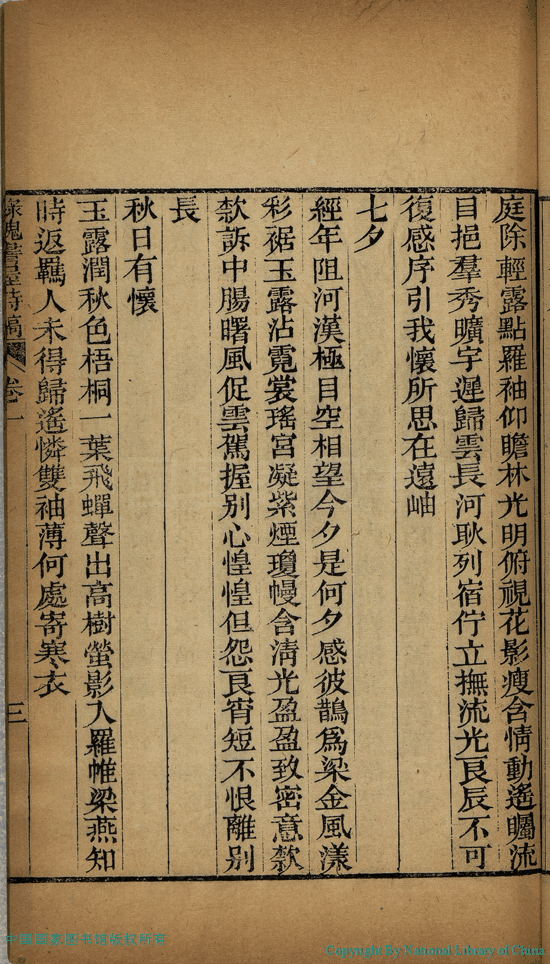 庭除輕露點羅袖仰瞻林光明俯視花影瘦含情動遙矚流
目挹羣秀曠宇遲歸雲長河耿列宿佇立撫流光良辰不可
復感序引我懷所思在遠岫
七夕
經年阻河漢極目空相望今夕是何夕感彼鵲爲梁金風漾
彩裾玉露沾霓裳瑤宮凝紫煙瓊幔含淸光盈盈致密意款
款訴中腸曙風促雲駕握別心惶惶但怨良宵短不恨離別
長
秋日有懷
玉露潤秋色梧桐一葉飛蟬聲出高樹螢影入羅帷梁燕知
時返羈人未得歸遙憐雙袖薄何處寄寒衣
綠槐書屋詩稿 卷一 三
中國國家圖書館版权所有
Copyright By National Library of China